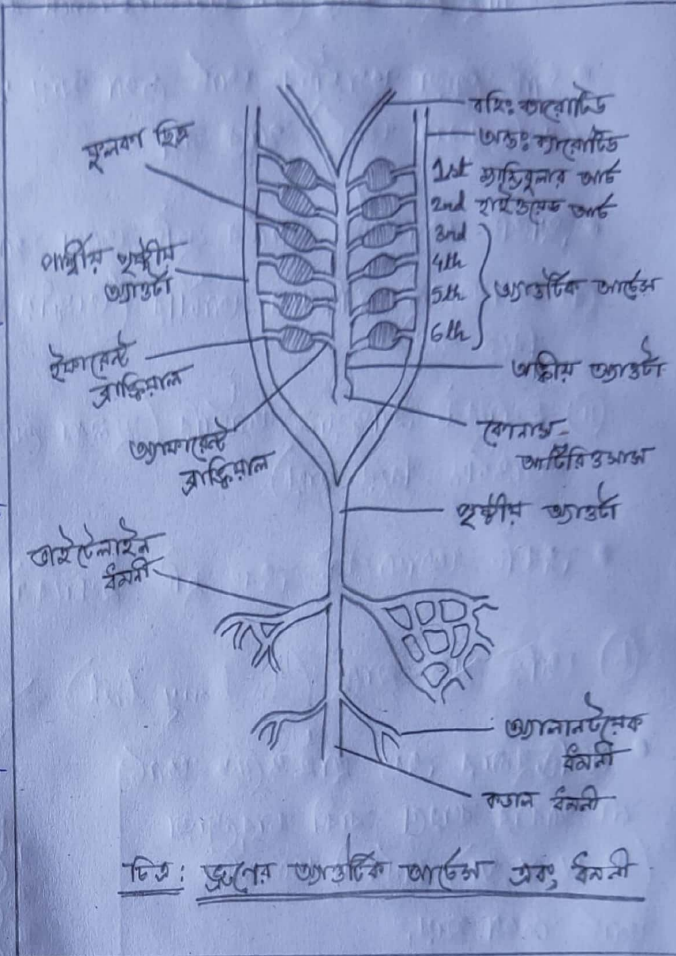 বহিঃ ক্যারোটিড
অন্তঃ ক্যারোটিড
ফুলকা ছিদ্র
1st ম্যান্ডিবুলার আর্চ
2nd হাইওয়েড আর্চ
3rd
4th
5th
6th
অ্যাওর্টিক আর্চেস
পার্শ্বীয় পৃষ্ঠীয়
অ্যাওর্টা
ইফারেন্ট
ব্রাঙ্কিয়াল
অঙ্কীয় অ্যাওর্টা
অ্যাফারেন্ট
ব্রাঙ্কিয়াল
কোনাস-
আর্টিরিওসাস
পৃষ্ঠীয় অ্যাওর্টা
ভাইটেলাইন
ধমনী
অ্যালানটয়েক
ধমনী
কডাল ধমনী
চিত্র: ভ্রূণের অ্যাওর্টিক আর্চেস এবং ধমনী